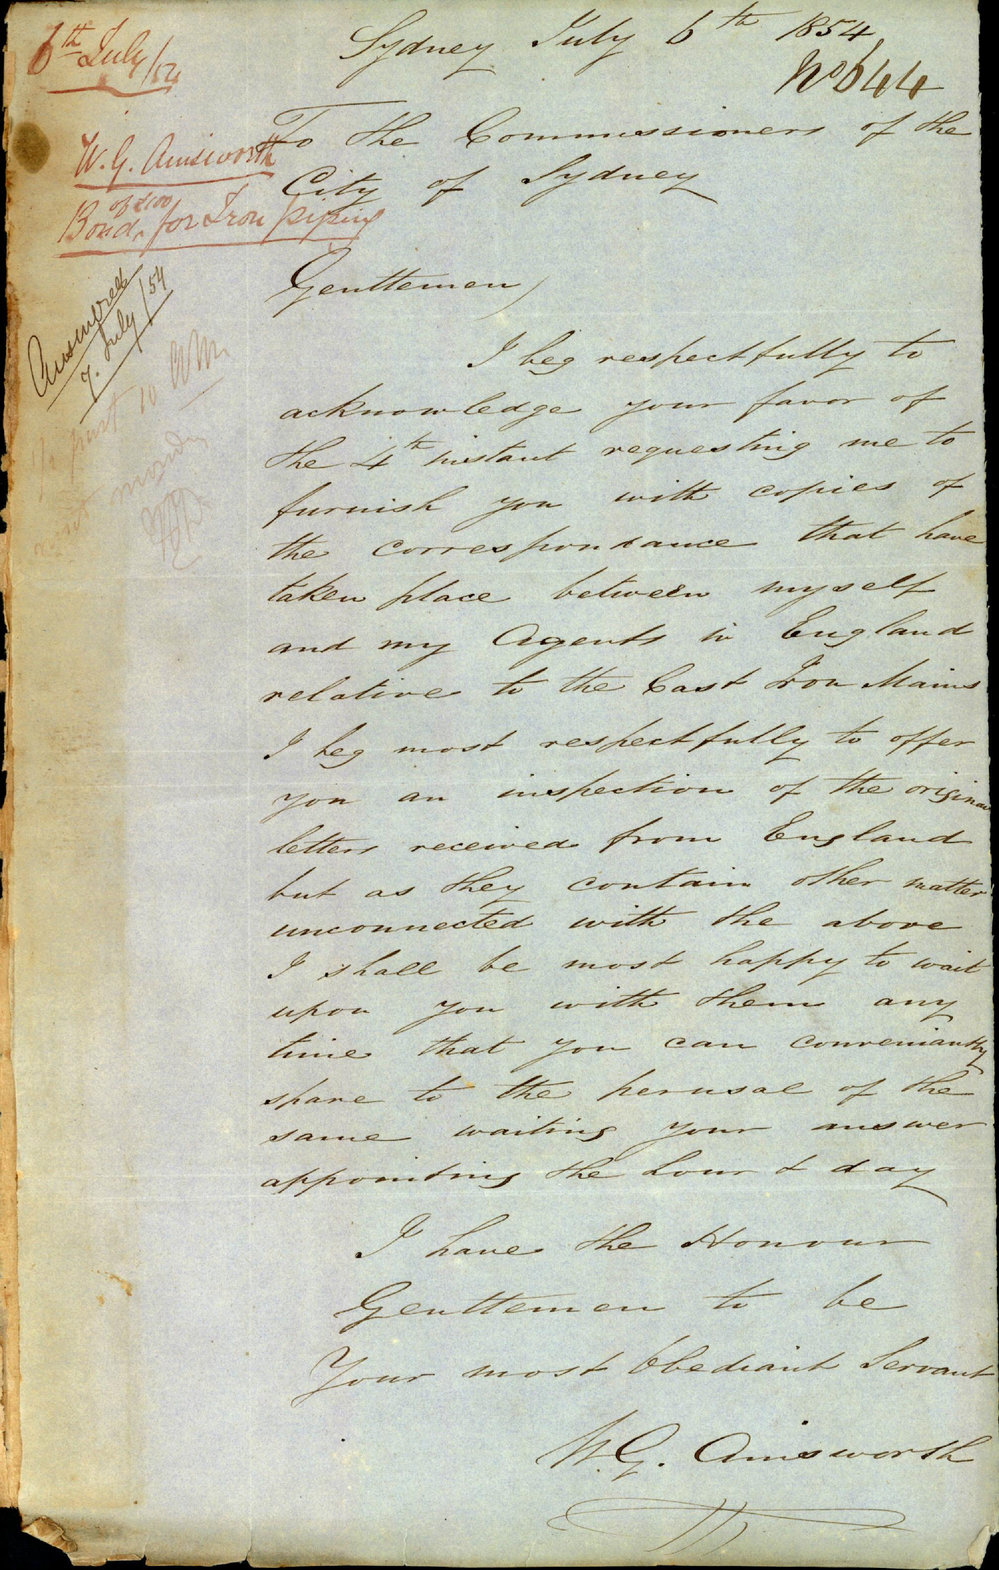 Sydney July 6th 1854
No 644
6th July/54
W. G. Ainsworth
of £100
Bond, for Iron piping
Answered
7. July/54
To the Commissioners of the
City of Sydney
Genttemen,
I beg respectfully to
acknowledge your favor of
the 4th instant requesting me to
furnish you with copies of
the correspondance that have
taken place between myself
and my Agents in England
relative to the Cast Iron Mains
I beg most respectfully to offer
you an inspection of the original
letters received from England
but as they contain other matter
unconnected with the above
I shall be most happy to wait
upon you with them any
time that you can conveniantly
spare to the perusal of the
same waiting your answer
appointing the hour & day
I have the Honour
Genttemen to be
Your most Obediant Servant
W. G. Ainsworth